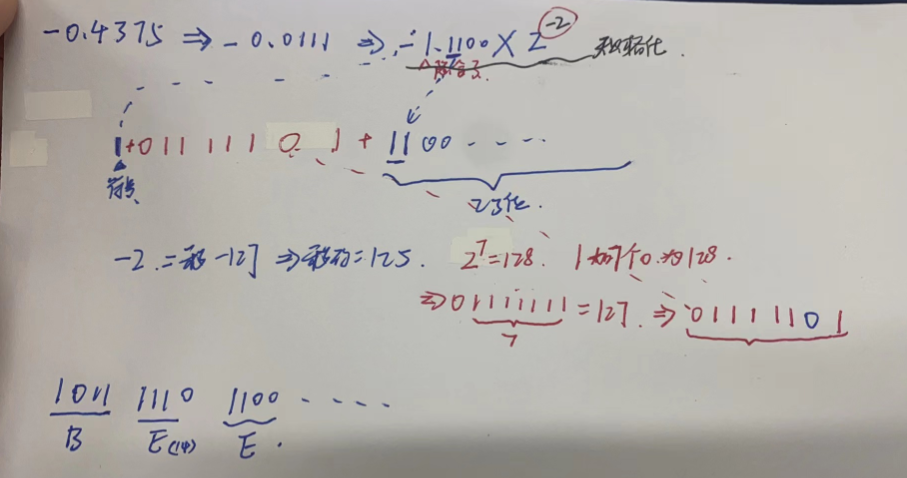 -0.4375 ⇒ -0.0111 ⇒ -1.1100 × 2^-2 规格化.
个隐含了.
1+01111101 + 1100 ----
符号
23位.
-2 = 移-127 ⇒ 移码=125. 2^7=128. 1加7个0为128.
⇒ 01111111=127. ⇒ 01111101
7
1011 1110 1100 ----
B E(14) E.